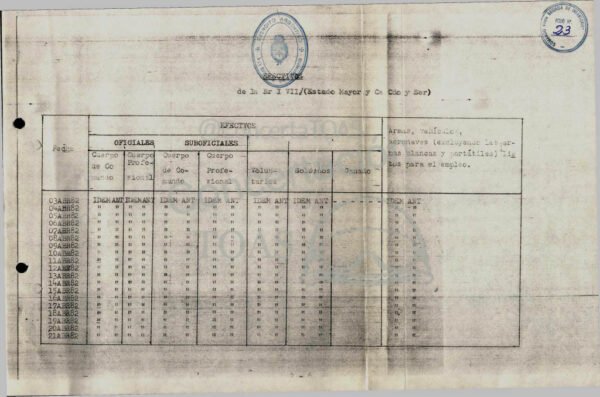 FOLIO Nº
23
EFECTIVOS
de la Br I VII/(Estado Mayor y Ca Cdo y Ser)
EFECTIVOS
Fecha
OFICIALES SUBOFICIALES
Armas, vehículos,
aeronaves (excluyendo las ar-
mas blancas y portátiles) lis
tos para el empleo.
Cuerpo Cuerpo Cuerpo Cuerpo
de Co Profe- de Co- Profe- Volun- Soldados Ganado
mando sional mando sional tarios
03ABR82 IDEM ANT IDEM ANT IDEM ANT IDEM ANT IDEM ANT IDEM ANT IDEM ANT
04ABR82 " " " " " " " " " " " " " "
05ABR82 " " " " " " " " " " " " " "
06ABR82 " " " " " " " " " " " " " "
07ABR82 " " " " " " " " " " " " " "
08ABR82 " " " " " " " " " " " " " "
09ABR82 " " " " " " " " " " " " " "
10ABR82 " " " " " " " " " " " " " "
11ABR82 " " " " " " " " " " " " " "
12ABR82 " " " " " " " " " " " " " "
13ABR82 " " " " " " " " " " " " " "
14ABR82 " " " " " " " " " " " " " "
15ABR82 " " " " " " " " " " " " " "
16ABR82 " " " " " " " " " " " " " "
17ABR82 " " " " " " " " " " " " " "
18ABR82 " " " " " " " " " " " " " "
19ABR82 " " " " " " " " " " " " " "
20ABR82 " " " " " " " " " " " " " "
21ABR82 " " " " " " " " " " " " " "